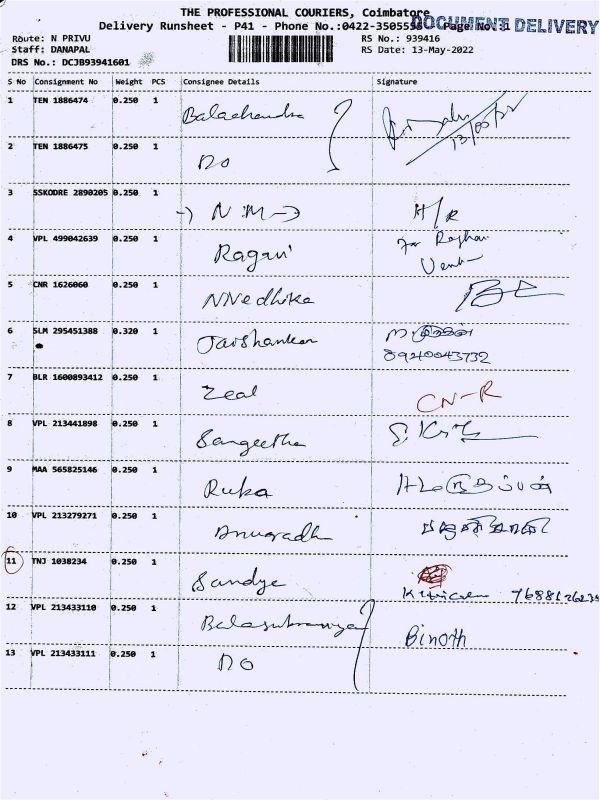 THE PROFESSIONAL COURIERS, Coimbatore
DOCUMENT DELIVERY
Delivery Runsheet - P41 - Phone No.:0422-3505595 Page No.:1
Route: N PRIVU RS No.: 939416
Staff: DANAPAL RS Date: 13-May-2022
DRS No.: DCJB93941601
S No Consignment No Weight PCS Consignee Details Signature
1 TEN 1886474 0.250 1 Balachandra 13/05/22
2 TEN 1886475 0.250 1 DO
3 SSKODRE 2890205 0.250 1 N.M H/R
4 VPL 499042639 0.250 1 Ragavi for Raghav
5 CNR 1626060 0.250 1 NNedhika
6 SLM 295451388 0.320 1 Jaishankar
8940043732
7 BLR 1600893412 0.250 1 Zeal CN-R
8 VPL 213441898 0.250 1 Sangeetha
9 MAA 565825146 0.250 1 Ruka
10 VPL 213279271 0.250 1 Anuradh
11 TNJ 1038234 0.250 1 Sandye
12 VPL 213433110 0.250 1 Balasubramaniya Binoth
13 VPL 213433111 0.250 1 DO